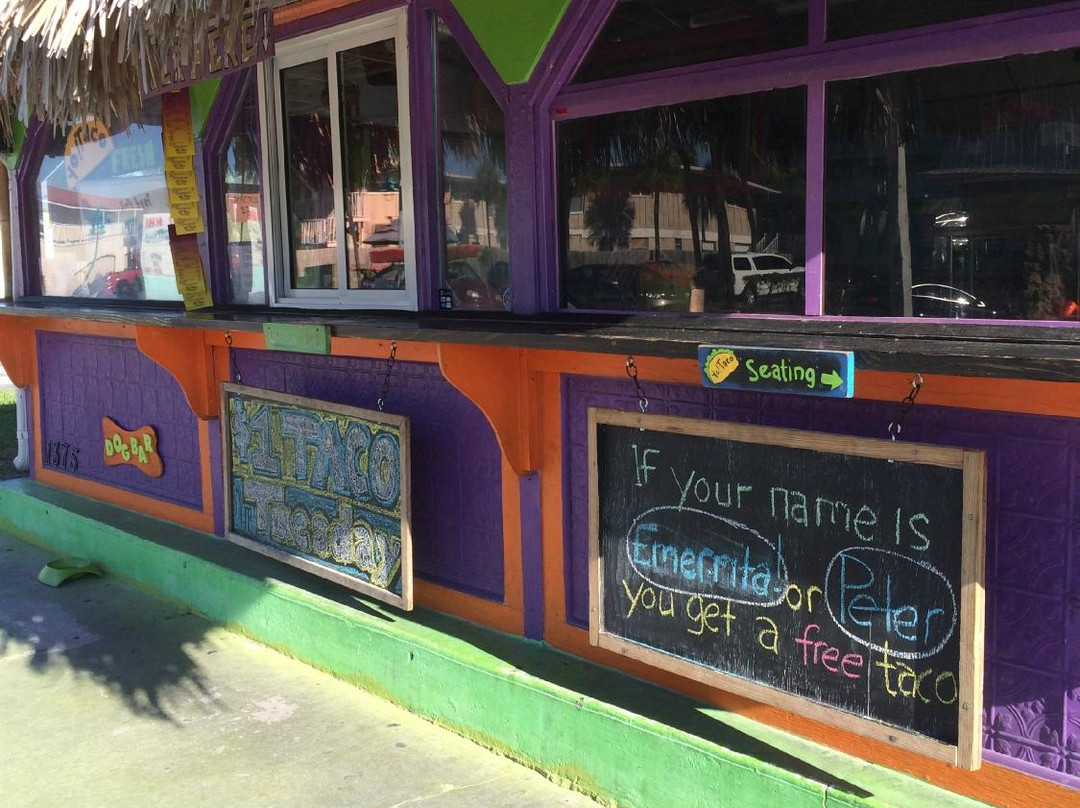 Taco
FRESH
Yo! Taco
Seating →
DOG BAR
1875
$1 TACO
Tuesday
If your name is
Emerrita! or Peter
you get a free taco